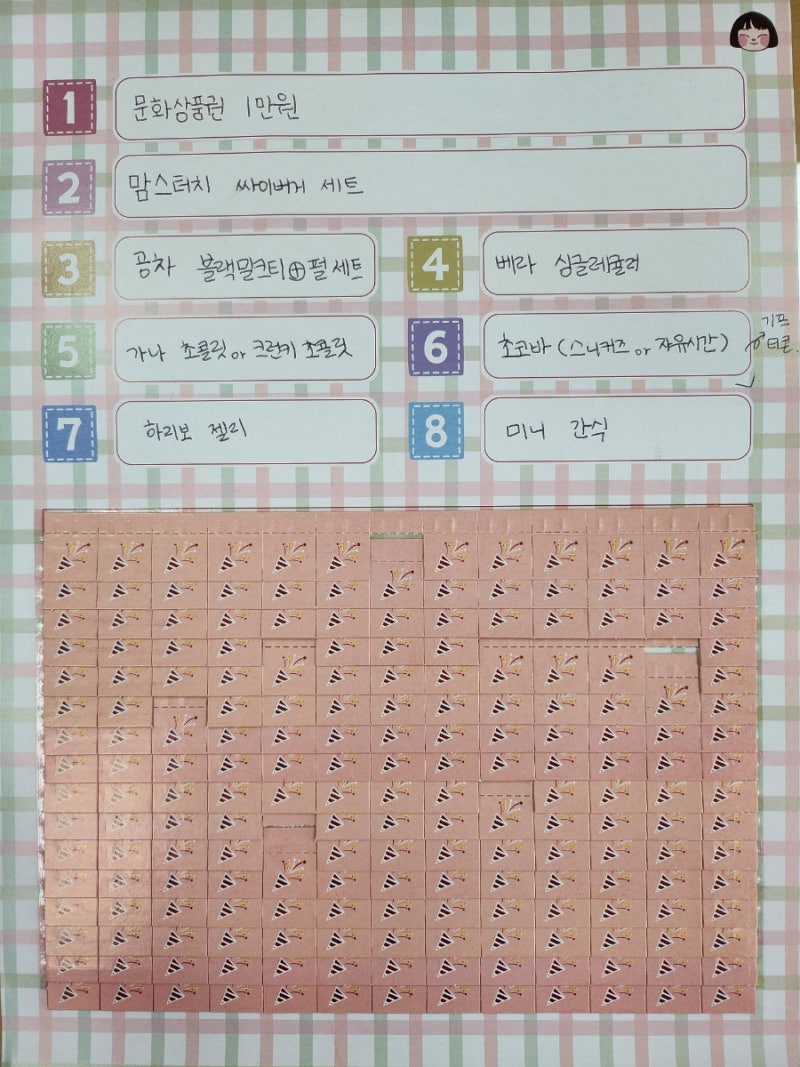 1 문화상품권 1만원
2 맘스터치 싸이버거 세트
3 공차 블랙밀크티⊕펄세트
4 베라 싱글레귤러
5 가나 초콜릿 or 크런키 초콜릿
6 초코바 (스니커즈 or 자유시간)
기프
티콘
7 하리보 젤리
8 미니 간식